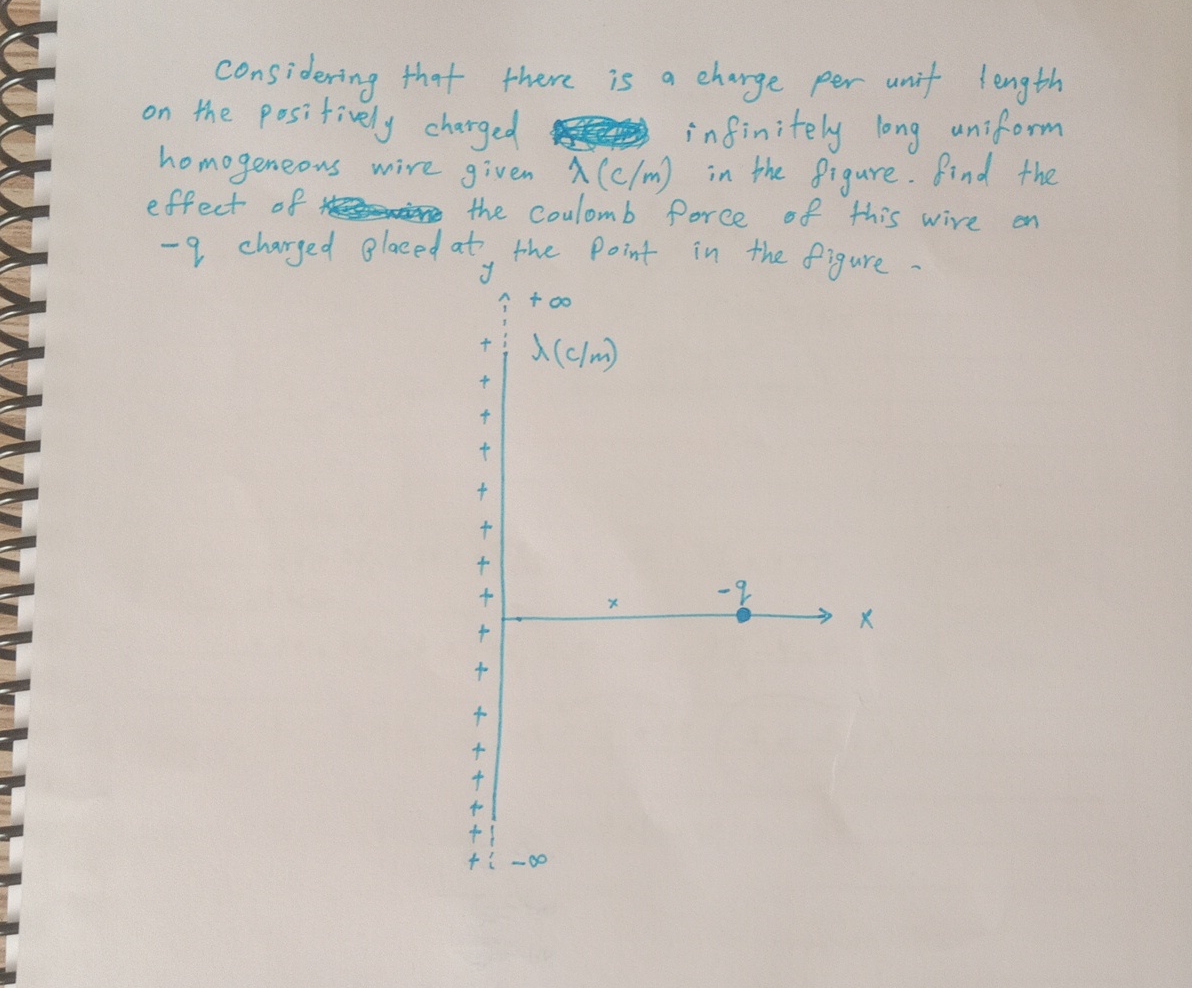 considering that there is a charge per unit length
on the positively charged infinitely long uniform
homogeneous wire given λ(c/m) in the figure. find the
effect of the coulomb force of this wire on
-q charged placed at the point in the figure.
y
+∞
λ(c/m)
+
+
+
+
+
+
+
+
-q
x
x
+
+
+
+
+
+
+
+
-∞